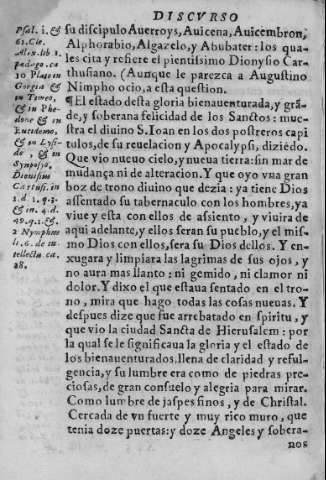 DISCVRSO
Psal. i. &
61. Cle.
Alex. lib 1.
pedago. ca.
10 Plato in
Gorgia &
in Timeo,
& in Phe-
done & in
Eutidemo,
& in Lysi-
de, & in
Symposio.
Dionisius
Cartusi. in
2. d. 1. q. 3.
& in. 4. d.
49. q. 2. &.
2 Nymphus
li. 6. de in-
tellectu ca.
28.
su discipulo Auerroys, Auicena, Auicembron,
Alphorabio, Algazelo, y Abubater: los qua-
les cita y refiere el pientisimo Dionysio Car-
thusiano. (Aunque le parezca a Augustino
Nimpho ocio, a esta question.
¶ El estado desta gloria bienauenturada, y grã-
de, y soberana felicidad de los Sanctos: mue-
stra el diuino S. Ioan en los dos postreros capi
tulos, de su reuelacion y Apocalypsi, diziẽdo.
Que vio nueuo cielo, y nueua tierra: sin mar de
mudança ni de alteracion. Y que oyo vna gran
boz de trono diuino que dezia: ya tiene Dios
assentado su tabernaculo con los hombres, ya
viue y esta con ellos de assiento, y viuira de
aqui adelante, y ellos seran su pueblo, y el mis-
mo Dios con ellos, sera su Dios dellos. Y en-
xugara y limpiara las lagrimas de sus ojos, y
no aura mas llanto: ni gemido, ni clamor ni
dolor. Y dixo el que estaua sentado en el tro-
no, mira que hago todas las cosas nueuas. Y
despues dize que fue arrebatado en spiritu, y
que vio la ciudad Sancta de Hierusalem: por
la qual se le significaua la gloria y el estado de
los bienauenturados, llena de claridad y reful-
gencia, y su lumbre era como de piedras pre-
ciosas, de gran consuelo y alegria para mirar.
Como lumbre de jaspes finos, y de Christal.
Cercada de vn fuerte y muy rico muro, que
tenia doze puertas: y doze Angeles y sobera-
nos